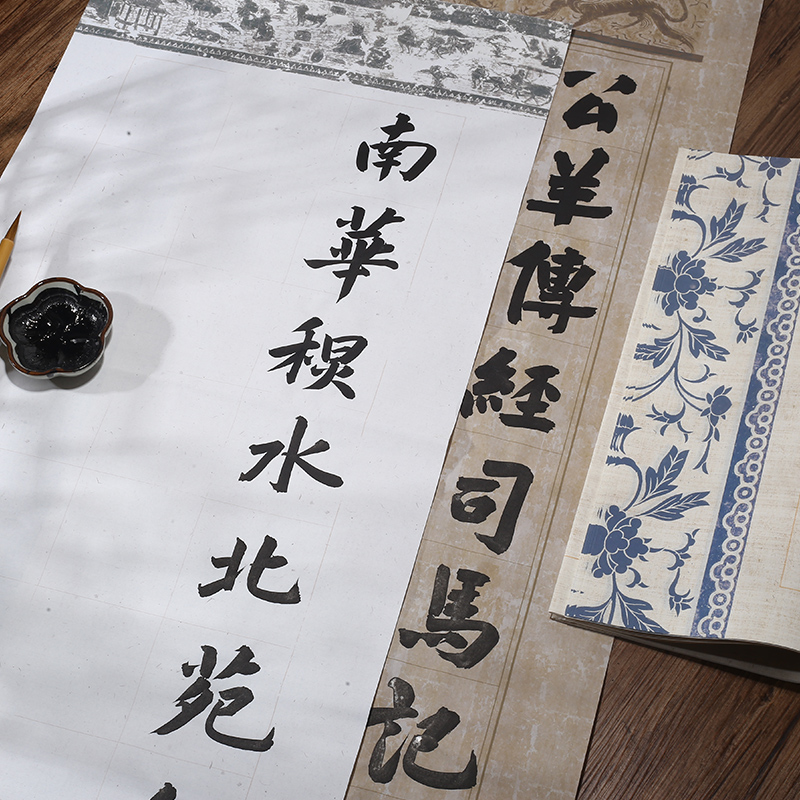 公羊傳經司馬記
南華秋水北苑